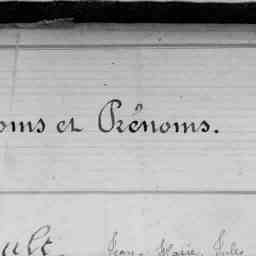 oms et Prénoms.
ult Jean Marie Jules